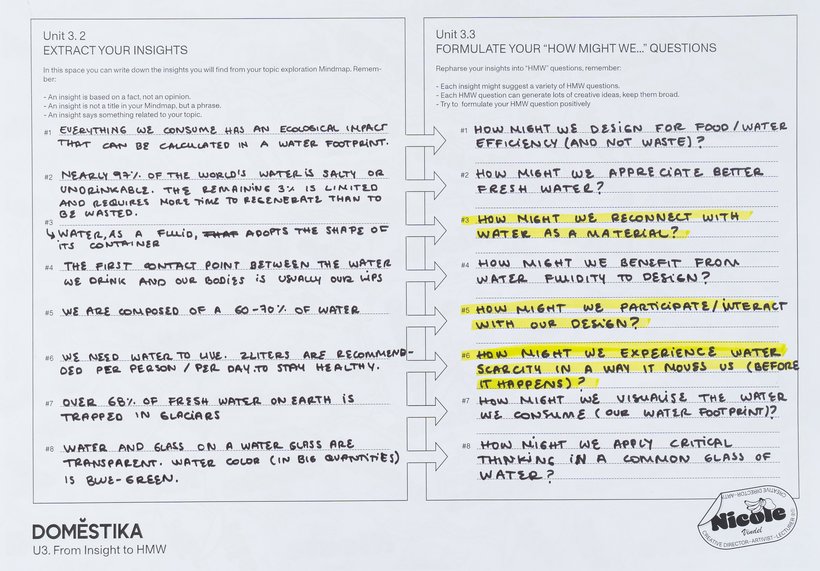 Unit 3. 2
EXTRACT YOUR INSIGHTS
In this space you can write down the insights you will find from your topic exploration Mindmap. Remem-
ber:
- An insight is based on a fact, not an opinion.
- An insight is not a title in your Mindmap, but a phrase.
- An insight says something related to your topic.
#1 EVERYTHING WE CONSUME HAS AN ECOLOGICAL IMPACT
THAT CAN BE CALCULATED IN A WATER FOOTPRINT.
#2 NEARLY 97% OF THE WORLD'S WATER IS SALTY OR
UNDRINKABLE. THE REMAINING 3% IS LIMITED
AND REQUIRES MORE TIME TO REGENERATE THAN TO
BE WASTED.
#3
↳ WATER, AS A FLUID, THAT ADOPTS THE SHAPE OF
ITS CONTAINER
#4 THE FIRST CONTACT POINT BETWEEN THE WATER
WE DRINK AND OUR BODIES IS USUALLY OUR LIPS
#5 WE ARE COMPOSED OF A 60-70% OF WATER
#6 WE NEED WATER TO LIVE. 2LITERS ARE RECOMMEND-
DED PER PERSON / PER DAY.TO STAY HEALTHY.
#7 OVER 68% OF FRESH WATER ON EARTH IS
TRAPPED IN GLACIARS
#8 WATER AND GLASS ON A WATER GLASS ARE
TRANSPARENT. WATER COLOR (IN BIG QUANTITIES)
IS BLUE-GREEN.
Unit 3.3
FORMULATE YOUR “HOW MIGHT WE...” QUESTIONS
Repharse your insights into “HMW” questions, remember:
- Each insight might suggest a variety of HMW questions.
- Each HMW question can generate lots of creative ideas, keep them broad.
- Try to formulate your HMW question positively
#1 HOW MIGHT WE DESIGN FOR FOOD/WATER
EFFICIENCY (AND NOT WASTE)?
#2 HOW MIGHT WE APPRECIATE BETTER
FRESH WATER?
#3 HOW MIGHT WE RECONNECT WITH
WATER AS A MATERIAL?
#4 HOW MIGHT WE BENEFIT FROM
WATER FLUIDITY TO DESIGN?
#5 HOW MIGHT WE PARTICIPATE/INTERACT
WITH OUR DESIGN?
#6 HOW MIGHT WE EXPERIENCE WATER
SCARCITY IN A WAY IT MOVES US (BEFORE
IT HAPPENS)?
#7 HOW MIGHT WE VISUALISE THE WATER
WE CONSUME (OUR WATER FOOTPRINT)?
#8 HOW MIGHT WE APPLY CRITICAL
THINKING IN A COMMON GLASS OF
WATER?
DOMĚSTIKA
U3. From Insight to HMW
Nicole
Vindel
CREATIVE DIRECTOR - ARTIVIST - LECTURER